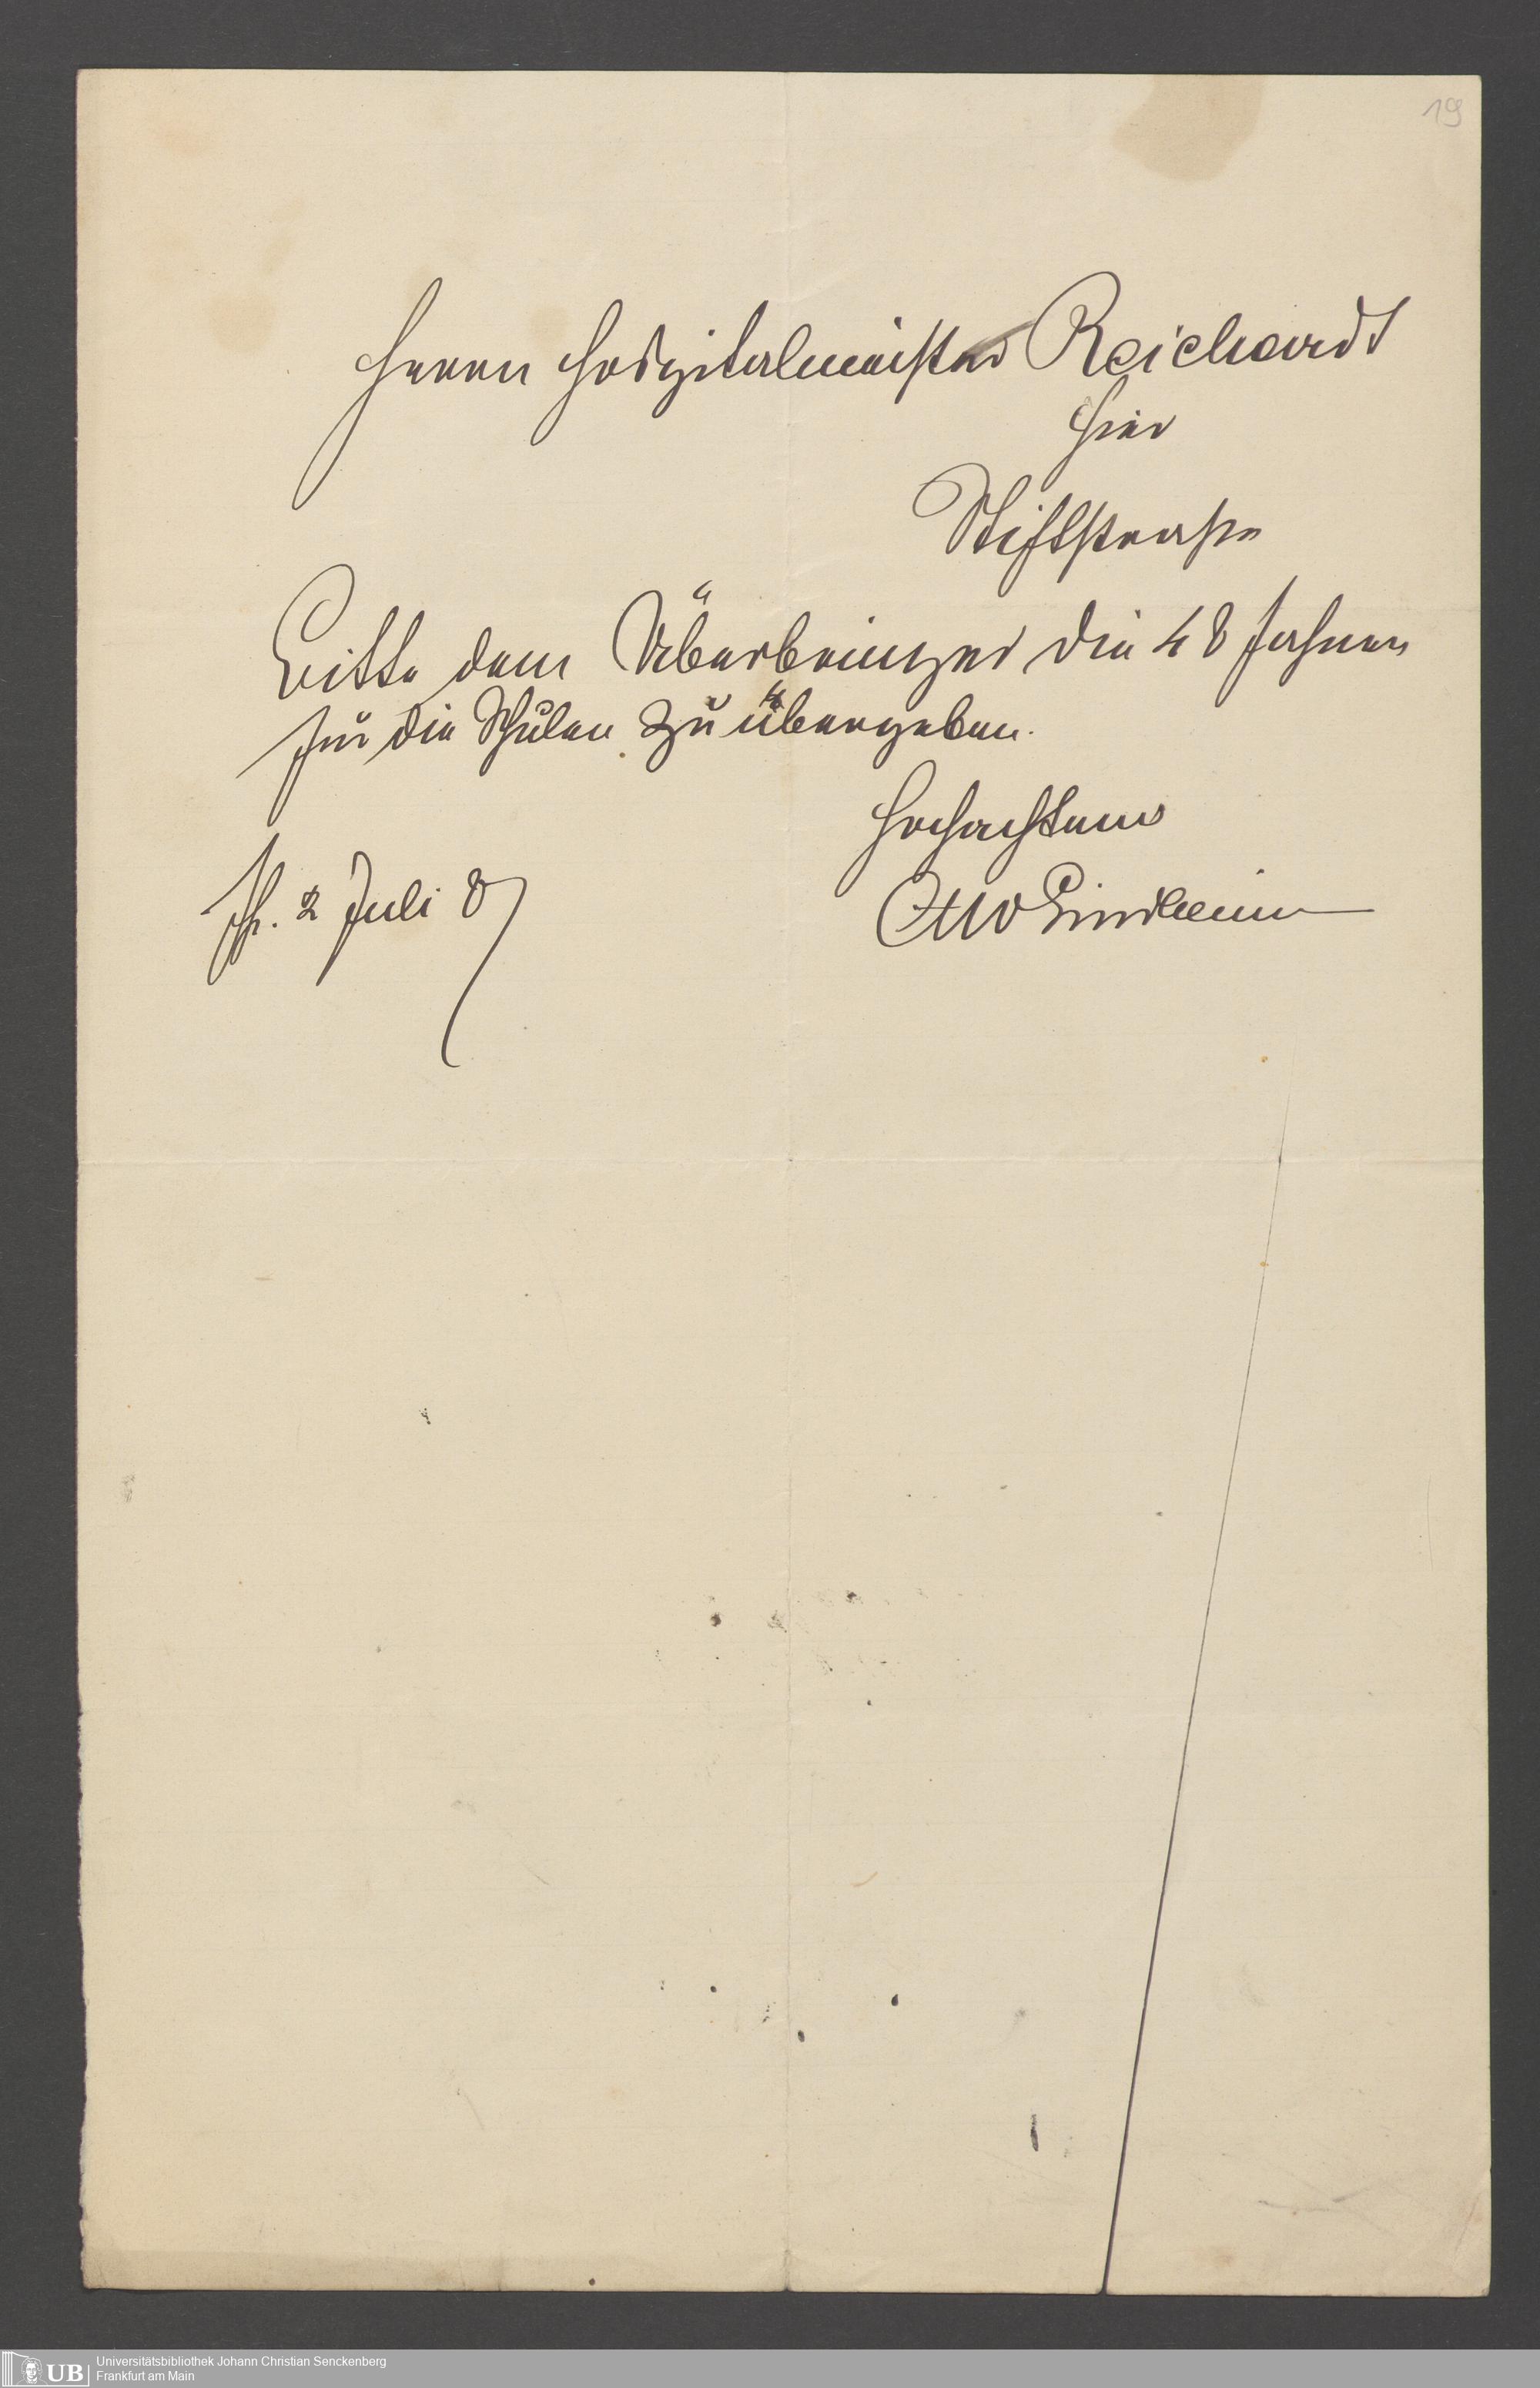 19
Herrn Hospitalmeister Reichardt
hier
Stiftstraße
Bitte dem Überbringer die 48 Fahnen
für die Schulen zu übergeben.
Hochachtend
Ff. 2 Juli 87
Otto Lindheimer
UB Universitätsbibliothek Johann Christian Senckenberg
Frankfurt am Main